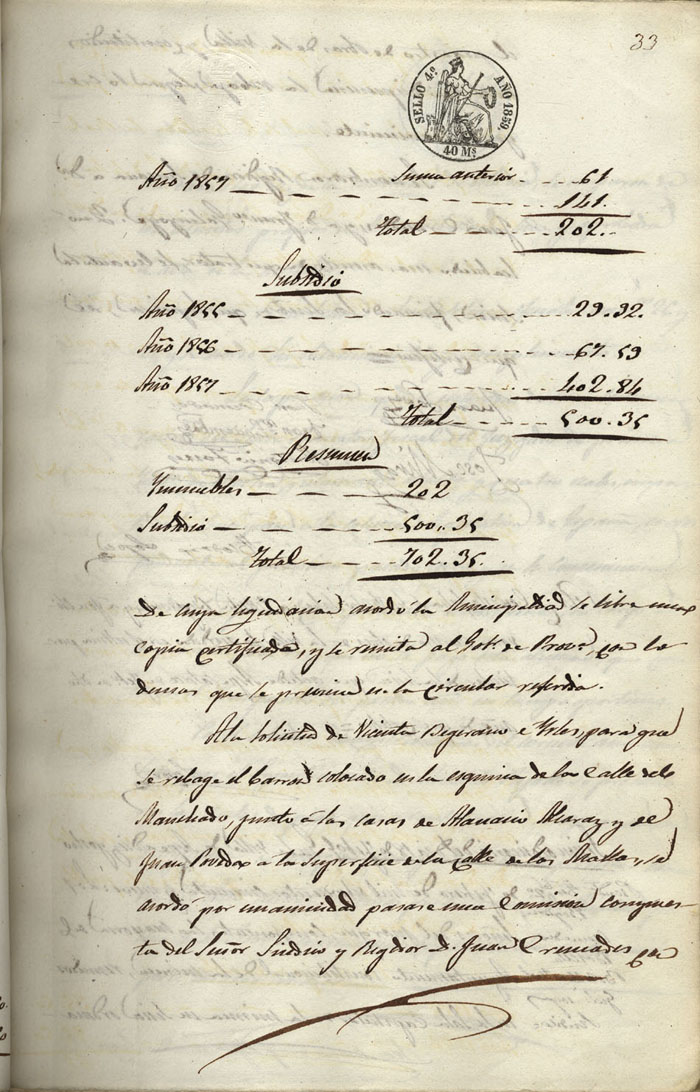 33
SELLO 4º AÑO 1859.
40 Ms
Suma anterior - - - 61
Año 1857 - - - - - - - - 141.
Total - - - - - 202.
Subsidio
Año 1855 - - - - - - - - 29.92.
Año 1856 - - - - - - - - 67.59
Año 1857 - - - - - - - - 402.84
Total - - - - - 500.35
Resumen
Ynmuebles - - - - - 202
Subsidio - - - - - 500.35
Total - - - - 702.35.
De cuya liquidacion acordó la Municipalidad se libre una
copia certificada, y se remita al Gobº de Provª, con lo
demas que se previene en la circular referida.
A la solicitud de Vicenta e Yrles, para que
se rebage el colocado en la esquina de la Calle del
junto á las casas de Atanacio Alcaraz y de
Juan Poveda a la Superficie de la Calle de los se
acordó por unanimidad pasase una Comision compues-
ta del Señor Sindico y Regidor D. Juan